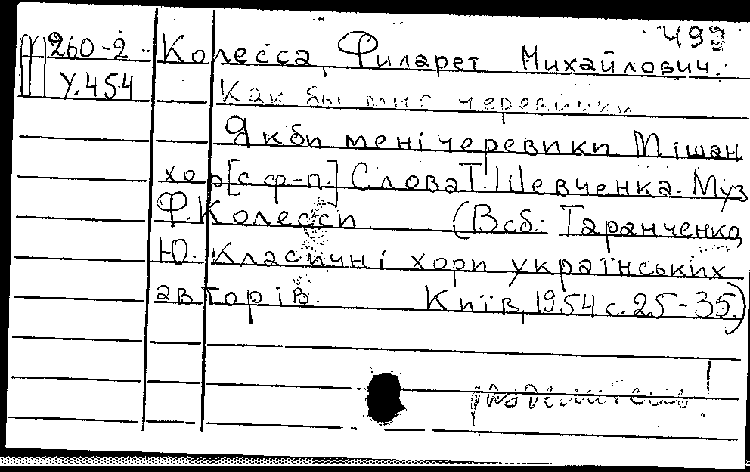 499
260-2 Колесса, Филарет Михайлович.
У.454 Как бы мне черевики
Якби мені черевики Мішан
хор [с ф-п.] Слова Т. Шевченка. Муз
Ф. Колесси (В сб.: Таранченко
Ю. Класичні хори українських
авторів. Київ, 1954 с. 25-35.)